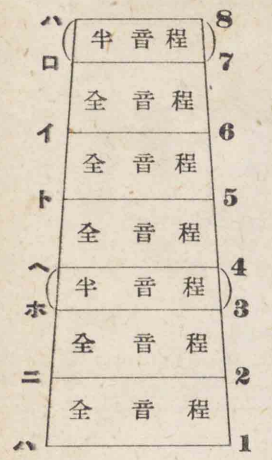 ハ 8
半音程
ロ 7
全音程
イ 6
全音程
ト 5
全音程
ヘ 4
半音程
ホ 3
全音程
ニ 2
全音程
ハ 1